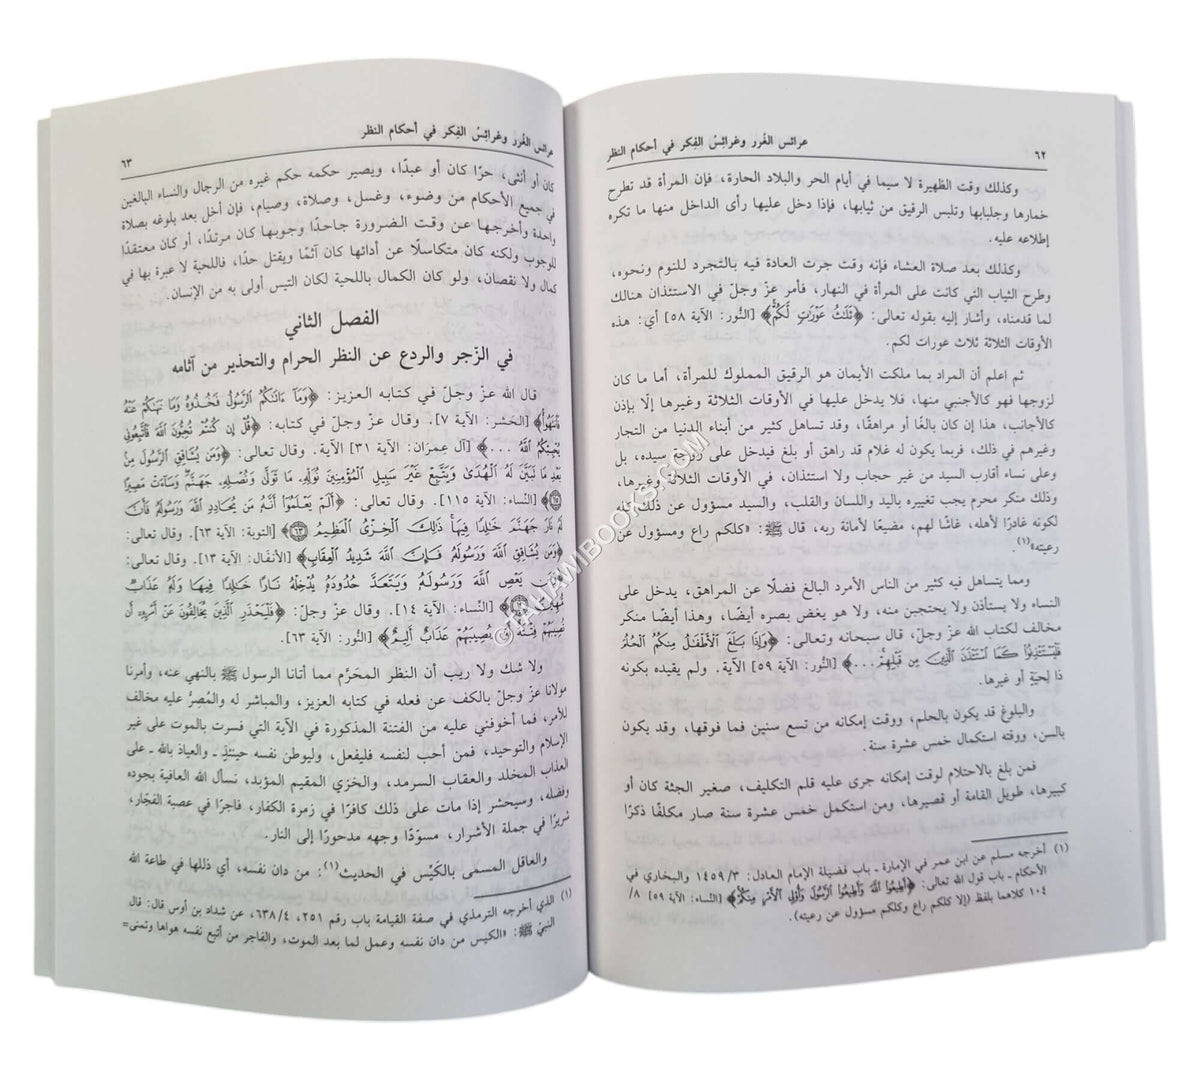 ٦٢
عرائس الغُرر وغرائِسُ الفِكر في أحكام النظر
وكذلك وقت الظهيرة لا سيما في أيام الحر والبلاد الحارة، فإن المرأة قد تطرح
خمارها وجلبابها وتلبس الرقيق من ثيابها، فإذا دخل عليها رأى الداخل منها ما تكره
إطلاعه عليه.
وكذلك بعد صلاة العشاء فإنه وقت جرت العادة فيه بالتجرد للنوم ونحوه،
وطرح الثياب التي كانت على المرأة في النهار، فأمر عزّ وجلّ في الاستئذان هنالك
لما قدمناه، وأشار إليه بقوله تعالى: ﴿ثَلَٰثُ عَوْرَٰتٍ لَّكُمْ﴾ [النُّور: الآية ٥٨] أي: هذه
الأوقات الثلاثة ثلاث عورات لكم.
ثم اعلم أن المراد بما ملكت الأيمان هو الرقيق المملوك للمرأة، أما ما كان
لزوجها فهو كالأجنبي منها، فلا يدخل عليها في الأوقات الثلاثة وغيرها إلّا بإذن
كالأجانب، هذا إن كان بالغًا أو مراهقًا، وقد تساهل كثير من أبناء الدنيا من التجار
وغيرهم في ذلك، فربما يكون له غلام قد راهق أو بلغ فيدخل على زوجة سيده، بل
وعلى نساء أقارب السيد من غير حجاب ولا استئذان، في الأوقات الثلاثة وغيرها،
وذلك منكر محرم يجب تغييره باليد واللسان والقلب، والسيد مسؤول عن ذلك كله
لكونه غادرًا لأهله، غاشًا لهم، مضيعًا لأمانة ربه، قال ﷺ: «كلكم راع ومسؤول عن
رعيته»(١).
ومما يتساهل فيه كثير من الناس الأمرد البالغ فضلًا عن المراهق، يدخل على
النساء ولا يستأذن ولا يحتجبن منه، ولا هو يغض بصره أيضًا، وهذا أيضًا منكر
مخالف لكتاب الله عزّ وجلّ، قال سبحانه وتعالى: ﴿وَإِذَا بَلَغَ ٱلْأَطْفَٰلُ مِنكُمُ ٱلْحُلُمَ
فَلْيَسْتَـْٔذِنُوا۟ كَمَا ٱسْتَـْٔذَنَ ٱلَّذِينَ مِن قَبْلِهِمْ...﴾ [النُّور: الآية ٥٩] الآية. ولم يقيده بكونه
ذا لِحيَةٍ أو غيرها.
والبلوغ قد يكون بالحلم، ووقت إمكانه من تسع سنين فما فوقها، وقد يكون
بالسن، ووقته استكمال خمس عشرة سنة.
فمن بلغ بالاحتلام لوقت إمكانه جرى عليه قلم التكليف، صغير الجثة كان أو
كبيرها، طويل القامة أو قصيرها، ومن استكمل خمس عشرة سنة صار مكلفًا ذكرًا
(١) أخرجه مسلم عن ابن عمر في الإمارة ـ باب فضيلة الإمام العادل: ١٤٥٩/٣ والبخاري في
الأحكام ـ باب قول الله تعالى: ﴿أَطِيعُوا۟ ٱللَّهَ وَأَطِيعُوا۟ ٱلرَّسُولَ وَأُو۟لِى ٱلْأَمْرِ مِنكُمْ﴾ [النِّساء: الآية ٥٩] ٨/
١٠٤ كلاهما بلفظ (إلا كلكم راع وكلكم مسؤول عن رعيته).
عرائس الغُرر وغرائِسُ الفِكر في أحكام النظر
٦٣
كان أو أنثى، حرًا كان أو عبدًا، ويصير حكمه حكم غيره من الرجال والنساء البالغين
في جميع الأحكام من وضوء، وغسل، وصلاة، وصيام، فإن أخل بعد بلوغه بصلاة
واحدة وأخرجها عن وقت الضرورة جاحدًا وجوبها كان مرتدًا، أو كان معتقدًا
للوجوب ولكنه كان متكاسلًا عن أدائها كان آثمًا ويقتل حدًا، فاللحية لا عبرة بها في
كمال ولا نقصان، ولو كان الكمال باللحية لكان التيس أولى به من الإنسان.
الفصل الثاني
في الزّجر والردع عن النظر الحرام والتحذير من آثامه
قال الله عزّ وجلّ في كتابه العزيز: ﴿وَمَآ ءَاتَىٰكُمُ ٱلرَّسُولُ فَخُذُوهُ وَمَا نَهَىٰكُمْ عَنْهُ
فَٱنتَهُوا۟﴾ [الحَشر: الآية ٧]. وقال عزّ وجلّ في كتابه: ﴿قُلْ إِن كُنتُمْ تُحِبُّونَ ٱللَّهَ فَٱتَّبِعُونِى
يُحْبِبْكُمُ ٱللَّهُ ...﴾ [آل عِمرَان: الآية ٣١] الآية. وقال تعالى: ﴿وَمَن يُشَاقِقِ ٱلرَّسُولَ مِنۢ
بَعْدِ مَا تَبَيَّنَ لَهُ ٱلْهُدَىٰ وَيَتَّبِعْ غَيْرَ سَبِيلِ ٱلْمُؤْمِنِينَ نُوَلِّهِۦ مَا تَوَلَّىٰ وَنُصْلِهِۦ جَهَنَّمَ وَسَآءَتْ مَصِيرًا
١١٥﴾ [النِّساء: الآية ١١٥]. وقال تعالى: ﴿أَلَمْ يَعْلَمُوٓا۟ أَنَّهُۥ مَن يُحَادِدِ ٱللَّهَ وَرَسُولَهُۥ فَأَنَّ
لَهُۥ نَارَ جَهَنَّمَ خَٰلِدًا فِيهَا ذَٰلِكَ ٱلْخِزْىُ ٱلْعَظِيمُ ٦٣﴾ [التوبة: الآية ٦٣]. وقال تعالى:
﴿وَمَن يُشَاقِقِ ٱللَّهَ وَرَسُولَهُۥ فَإِنَّ ٱللَّهَ شَدِيدُ ٱلْعِقَابِ﴾ [الأنفال: الآية ١٣]. وقال تعالى:
﴿وَمَن يَعْصِ ٱللَّهَ وَرَسُولَهُۥ وَيَتَعَدَّ حُدُودَهُۥ يُدْخِلْهُ نَارًا خَٰلِدًا فِيهَا وَلَهُۥ عَذَابٌ
مُّهِينٌ ١٤﴾ [النِّساء: الآية ١٤]. وقال عزّ وجلّ: ﴿فَلْيَحْذَرِ ٱلَّذِينَ يُخَالِفُونَ عَنْ أَمْرِهِۦٓ أَن
تُصِيبَهُمْ فِتْنَةٌ أَوْ يُصِيبَهُمْ عَذَابٌ أَلِيمٌ﴾ [النُّور: الآية ٦٣].
ولا شك ولا ريب أن النظر المحَرَّم مما أتانا الرسول ﷺ بالنهي عنه، وأمرنا
مولانا عزّ وجلّ بالكف عن فعله في كتابه العزيز، والمباشر له والمُصِرُّ عليه مخالف
للأمر، فما أخوفني عليه من الفتنة المذكورة في الآية التي فسرت بالموت على غير
الإسلام والتوحيد، فمن أحب لنفسه فليفعل، وليوطن نفسه حينئذٍ ـ والعياذ بالله ـ على
العذاب المخلد والعقاب السرمد، والخزي المقيم المؤبد، نسأل الله العافية بجوده
وفضله، وسيحشر إذا مات على ذلك كافرًا في زمرة الكفار، فاجرًا في عصبة الفجّار،
شريرًا في جملة الأشرار، مسوّدًا وجهه مدحورًا إلى النار.
والعاقل المسمى بالكَيِّس في الحديث(١): من دان نفسه، أي ذللها في طاعة الله
(١) الذي أخرجه الترمذي في صفة القيامة باب رقم ٢٥١، ٦٣٨/٤، عن شداد بن أوس قال: قال
النبيّ ﷺ: «الكيس من دان نفسه وعمل لما بعد الموت، والفاجر من أتبع نفسه هواها وتمنى=
©TAHAWIBOOKS.COM